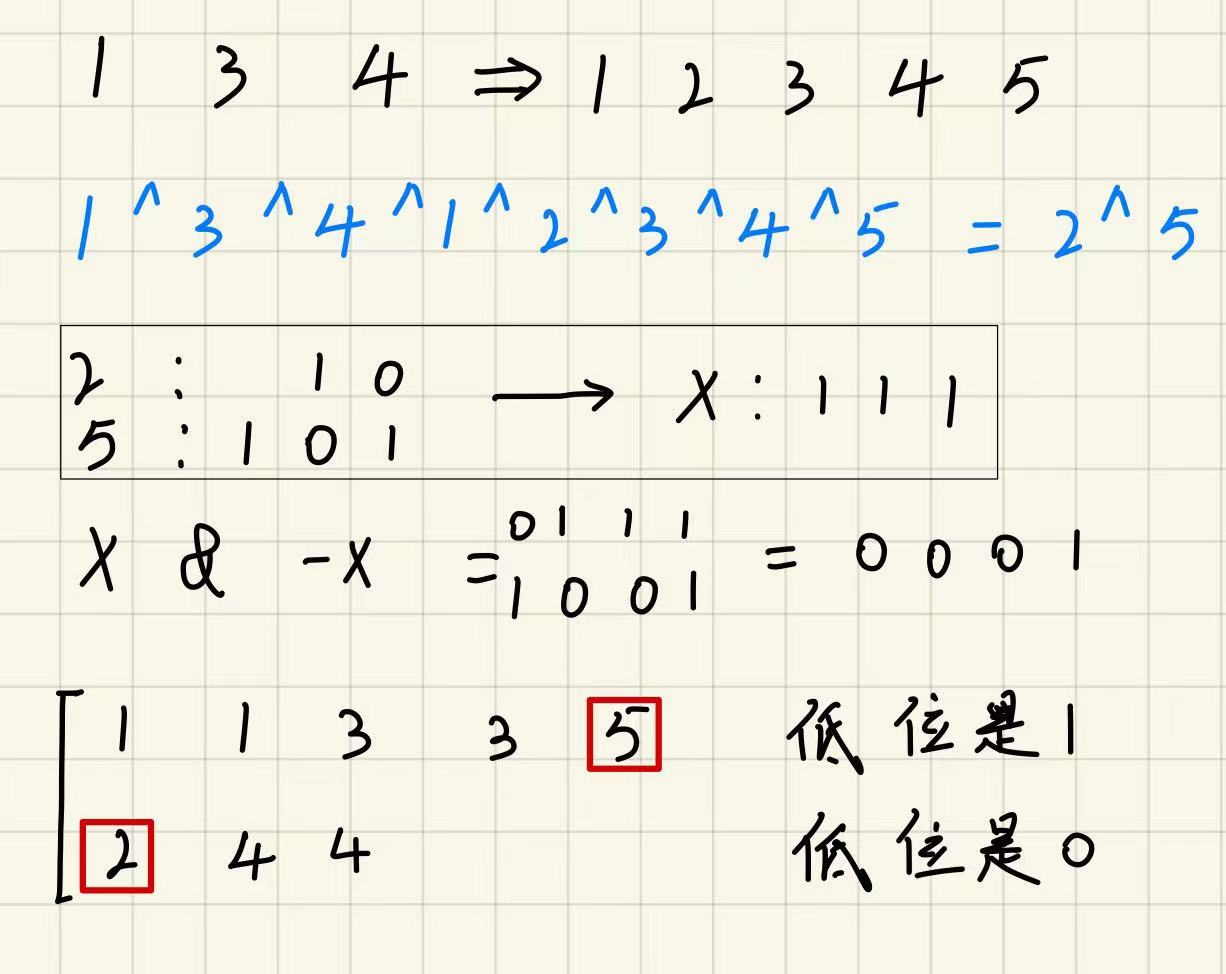 1 3 4 ⇒ 1 2 3 4 5
1 ^ 3 ^ 4 ^ 1 ^ 2 ^ 3 ^ 4 ^ 5 = 2 ^ 5
2 : 1 0 → X : 1 1 1
5 : 1 0 1
X & -X = 0 1 1 1 = 0 0 0 1
1 0 0 1
1 1 3 3 5 低位是1
2 4 4 低位是0